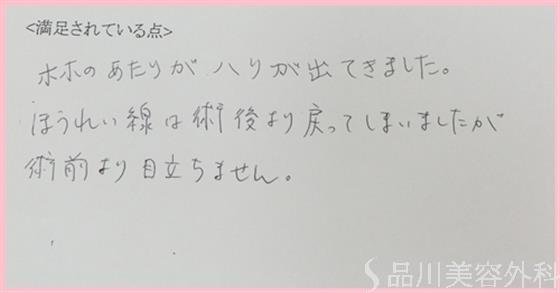 <満足されている点>
ホホのあたりがハリが出てきました。
ほうれい線は術後より戻ってしまいましたが
術前より目立ちません。
品川美容外科